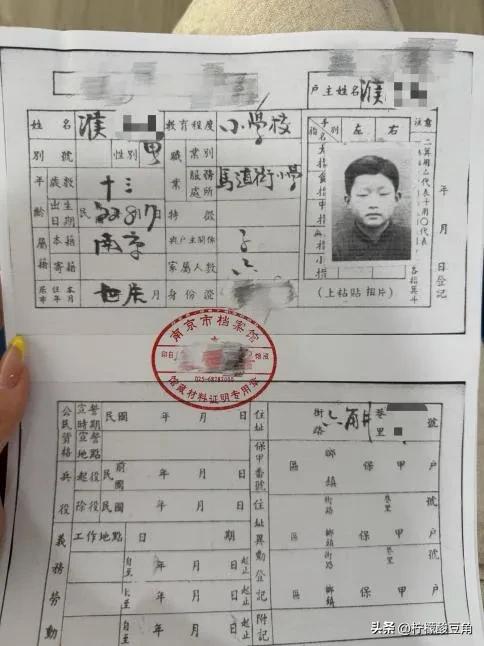 户主姓名 濮
姓名 濮
教育程度 小學校
別號
性別 甲
職業 業別
服務處所 馬道街小學
年齡 歲數 十三
出生日期 民
特徵
屬籍 本籍 南京
寄籍
與戶主關係 子
家屬人數 六
居住本市年月
身份證
手別 左 右
指別
(上粘貼相片)
年 月 日登記
南京市档案馆
025-68785000
馆藏材料证明专用章
公民資格 宣誓時期 民國 年 月 日
宣誓地點
兵役 起役 民前國 年 月 日
除役 民國 年 月 日
義務勞動 工作地點 日期
自至 年 月 日 起止
自至 年 月 日 起止
自至 年 月 日 起止
住址 街路 六角井 巷里 號
保甲番號 區 鄉鎮 保 甲 戶
住址異動登記 街路 巷里 號
區 鄉鎮 保 甲 戶
街路 巷里 號
區 鄉鎮 保 甲 戶
附記
头条 @柠檬酸豆角